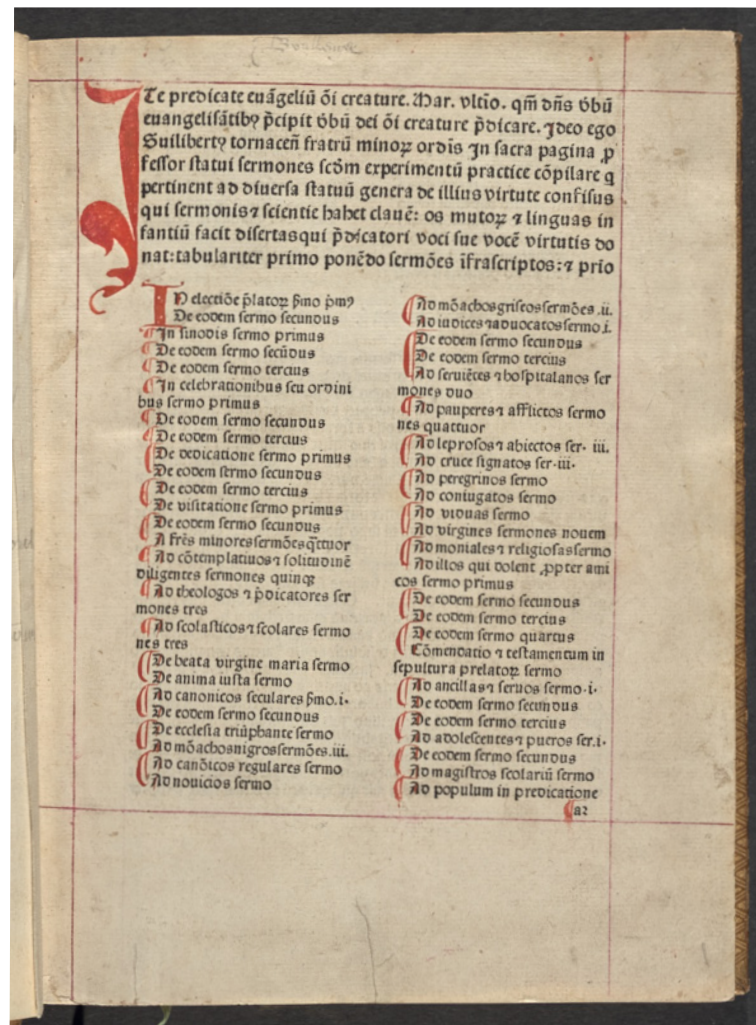 ITe predicate euāgeliū ōi creature. Mar. vltīo. qm̄ dn̄s v̄bū
euangelisātibꝰ p̄cipit v̄bū dei ōi creature p̄dicare. Ideo ego
Guilibertꝰ tornaceñ fratrū minoꝝ ordīs In sacra pagina ꝓ
fessor statui sermones scd̄m experimentū practice cōpilare q
pertinent ad diuersa statuū genera de illius virtute confisus
qui sermonis ⁊ scientie habet clauē: os mutoꝝ ⁊ linguas in
fantiū facit disertas qui p̄dicatori voci sue vocē virtutis do
nat: tabulariter primo ponēdo sermōes īfrascriptos: ⁊ prīo
IN electiōe p̄latoꝝ s̄mo p̄mꝰ
De eodem sermo secundus
In sinodis sermo primus
De eodem sermo secūdus
De eodem sermo tercius
In celebrationibus seu ordini
bus sermo primus
De eodem sermo secundus
De eodem sermo tercius
De dedicatione sermo primus
De eodem sermo secundus
De eodem sermo tercius
De visitatione sermo primus
De eodem sermo secundus
A fr̄es minores sermōes q̄ttuor
Ad cōtemplatiuos ⁊ solitudinē
diligentes sermones quinqꝫ
Ad theologos ⁊ p̄dicatores ser
mones tres
Ad scolasticos ⁊ scolares sermo
nes tres
De beata virgine maria sermo
De anima iusta sermo
Ad canonicos seculares s̄mo .i.
De eodem sermo secundus
De ecclesia triūphante sermo
Ad mōachos nigros sermōes .iii.
Ad canōicos regulares sermo
Ad nouicios sermo
Ad mōachos griseos sermōes .ii.
Ad iudices ⁊ aduocatos sermo .i.
De eodem sermo secundus
De eodem sermo tercius
Ad seruiētes ⁊ hospitalanos ser
mones duo
Ad pauperes ⁊ afflictos sermo
nes quattuor
Ad leprosos ⁊ abiectos ser. iii.
Ad cruce signatos ser. iii.
Ad peregrinos sermo
Ad coniugatos sermo
Ad viduas sermo
Ad virgines sermones nouem
Ad moniales ⁊ religiosas sermo
Ad illos qui dolent ꝓpter ami
cos sermo primus
De eodem sermo secundus
De eodem sermo tercius
De eodem sermo quartus
Cōmendatio ⁊ testamentum in
sepultura prelatoꝝ sermo
Ad ancillas ⁊ seruos sermo .i.
De eodem sermo secundus
De eodem sermo tercius
Ad adolescentes ⁊ pueros ser. i.
De eodem sermo secundus
Ad magistros scolariū sermo
Ad populum in predicatione
a2